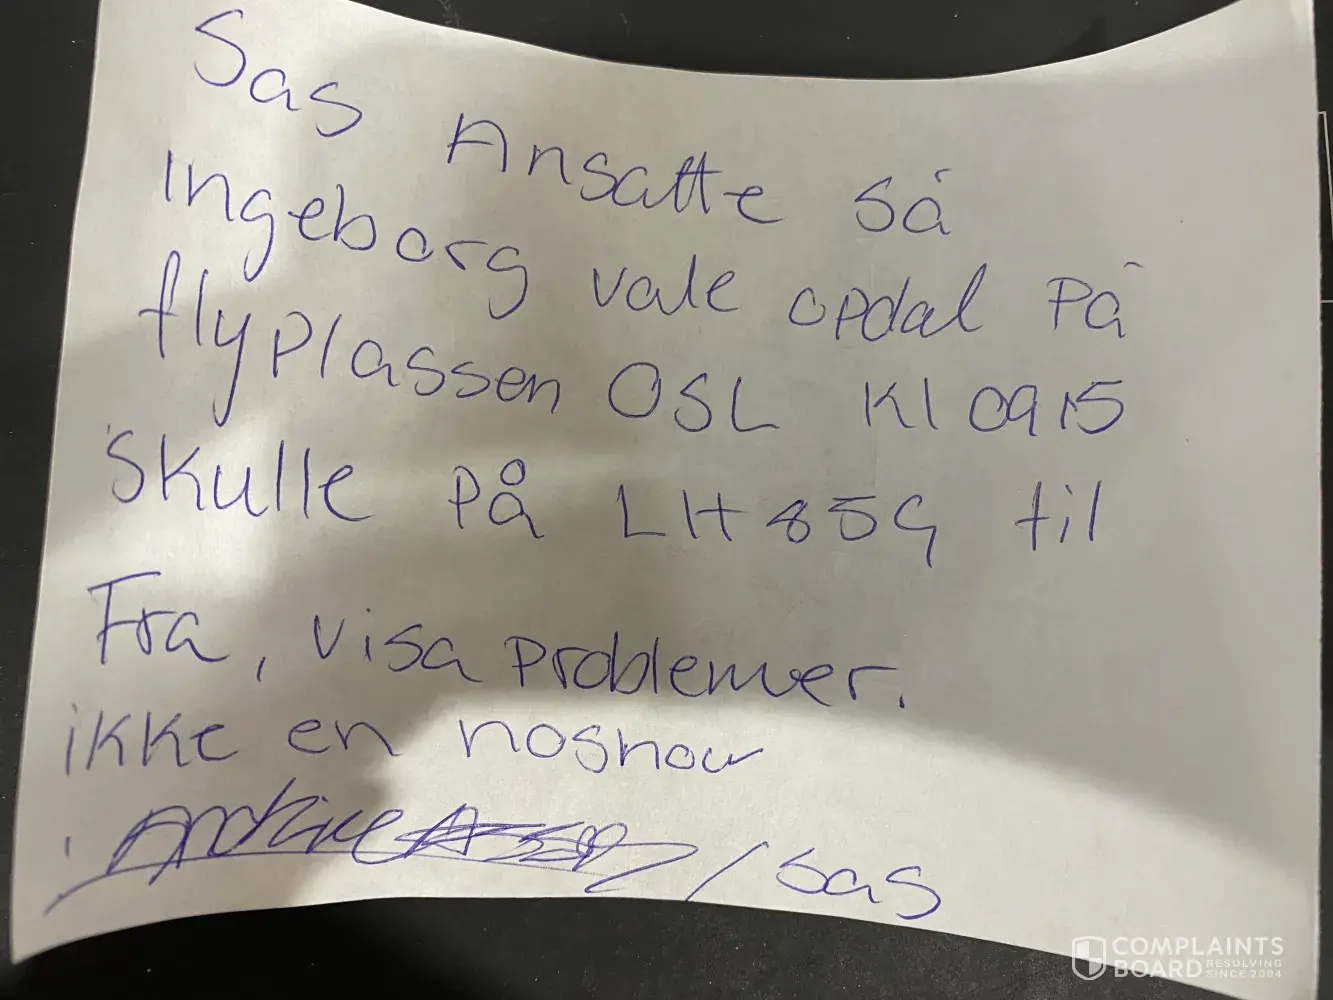 Sas Ansatte så
Ingeborg vale opdal på
flyplassen OSL Kl 0915
skulle på LH 859 til
Fra, visa problemer.
ikke en noshow
/ Sas
COMPLAINTS
BOARD RESOLVING
SINCE 2004